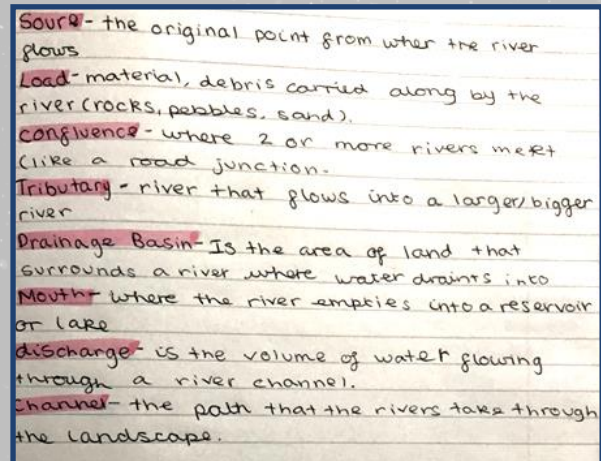 Source- the original point from wher the river
flows
Load- material, debris carried along by the
river (rocks, pebbles, sand).
confluence - where 2 or more rivers meet
(like a road junction.
Tributary - river that flows into a larger/bigger
river
Drainage Basin- Is the area of land that
surrounds a river where water draints into
Mouth- where the river empties into a reservoir
or lake
discharge- is the volume of water flowing
through a river channel.
Channel- the path that the rivers take through
the landscape.